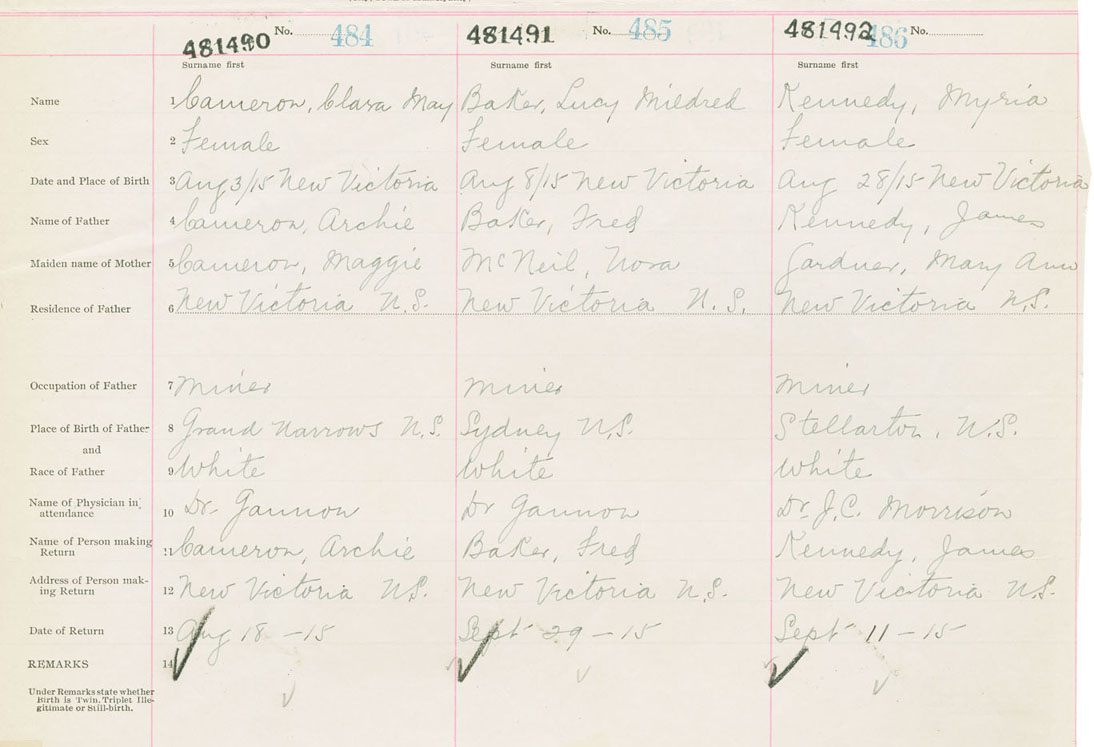 481490 No. 484 481491 No. 485 481492 486 No.
Surname first Surname first Surname first
Name 1 Cameron, Clara May Baker, Lucy Mildred Kennedy, Myria
Sex 2 Female Female Female
Date and Place of Birth 3 Aug 3/15 New Victoria Aug 8/15 New Victoria Aug 28/15 New Victoria
Name of Father 4 Cameron, Archie Baker, Fred Kennedy, James
Maiden name of Mother 5 Cameron, Maggie McNeil, Nora Gardner, Mary Ann
Residence of Father 6 New Victoria N.S. New Victoria N.S. New Victoria N.S.
Occupation of Father 7 Miner Miner Miner
Place of Birth of Father 8 Grand Narrows N.S. Sydney N.S. Stellarton, N.S.
and
Race of Father 9 White White White
Name of Physician in
attendance 10 Dr. Gannon Dr Gannon Dr. J.C. Morrison
Name of Person making
Return 11 Cameron, Archie Baker, Fred Kennedy, James
Address of Person mak-
ing Return 12 New Victoria N.S. New Victoria N.S. New Victoria N.S.
Date of Return 13 Aug 18 - 15 Sept 29 - 15 Sept 11 - 15
REMARKS 14
Under Remarks state whether
Birth is Twin, Triplet Ille-
gitimate or Still-birth.